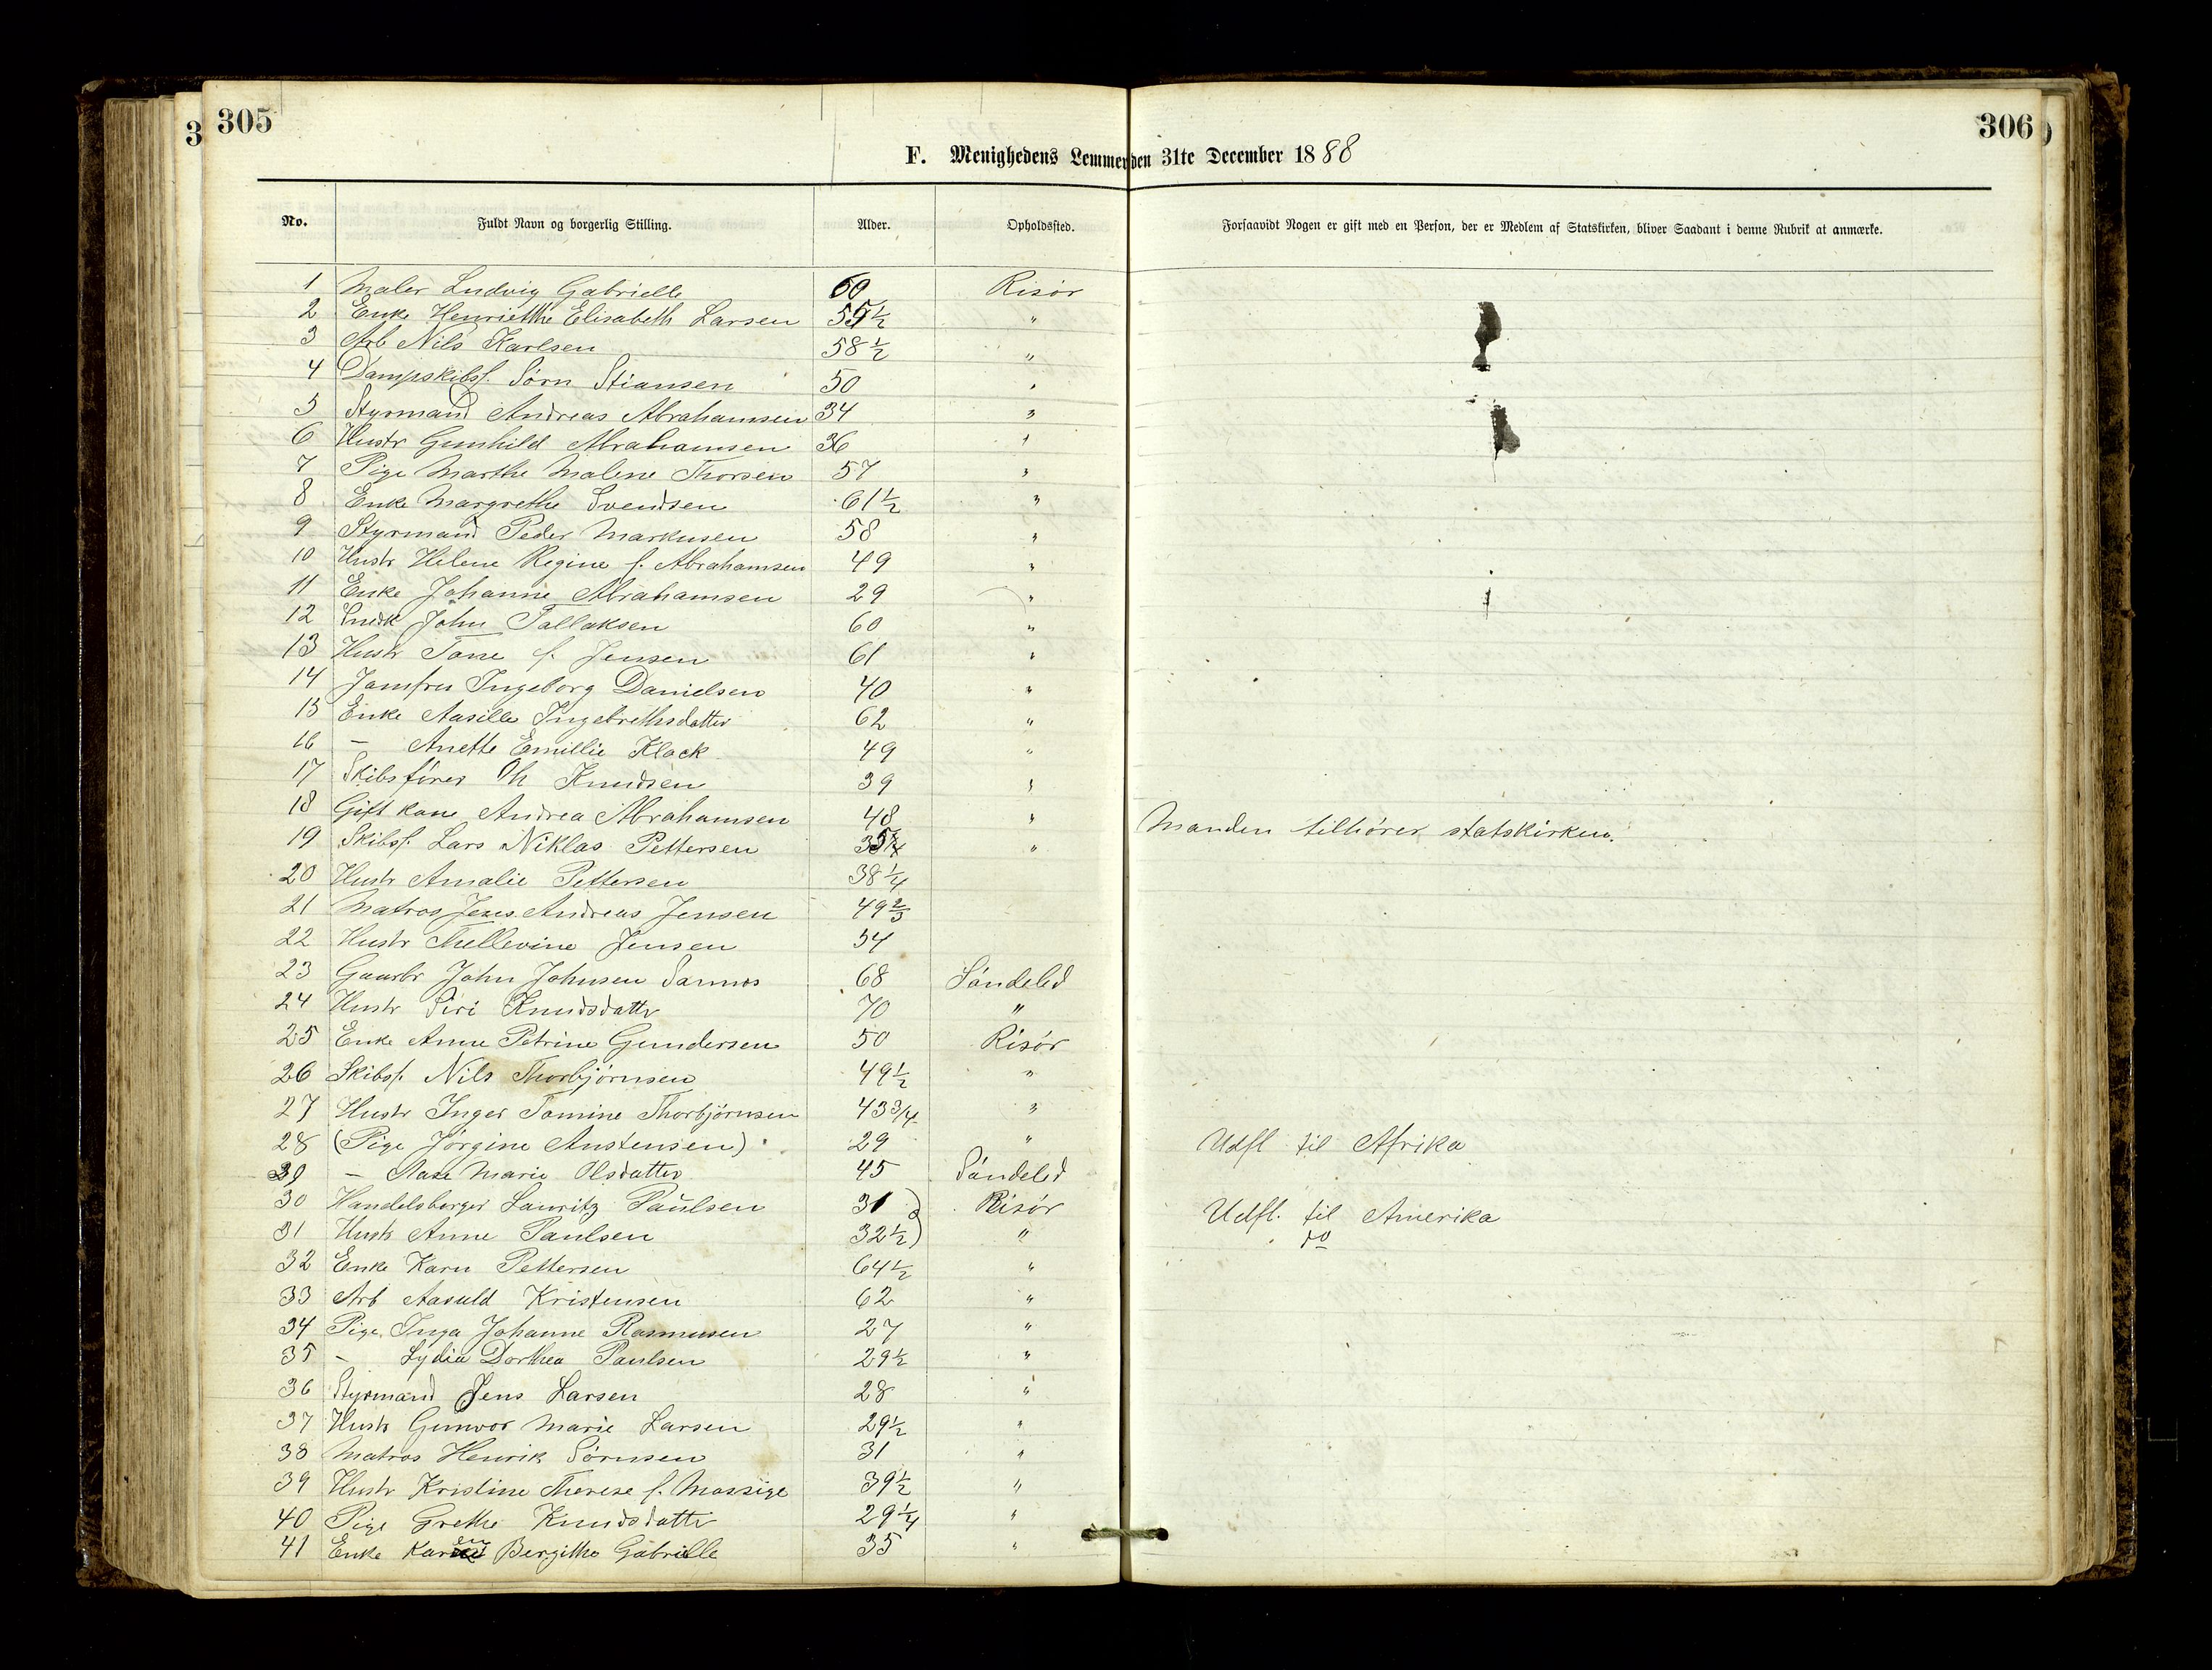 3 305
306
F. Menighedens Lemmer den 31te December 1888
No. Fuldt Navn og borgerlig Stilling. Alder. Opholdssted. Forsaavidt Nogen er gift med en Person, der er Medlem af Statskirken, bliver Saadant i denne Rubrik at anmærke.
1 Maler Ludvig Gabrielle 60 Risør
2 Enke Henriethe Elisabeth Larsen 59 1/2 "
3 Arb Nils Karlsen 58 1/2 "
4 Dampskibsf. Sørn Stiansen 50 "
5 Styrmand Andreas Abrahamsen 34 "
6 Hustr Gunhild Abrahamsen 36 "
7 Pige Marthe Malene Thorsen 57 "
8 Enke Margrethe Svendsen 61 1/2 "
9 Styrmand Peder Markusen 58 "
10 Hustr Helene Regine f. Abrahamsen 49 "
11 Enke Johanne Abrahamsen 29 "
12 Snedk John Tallaksen 60 "
13 Hustr Tone f. Jensen 61 "
14 Jomfru Ingeborg Danielsen 40 "
15 Enke Aasille Ingebrethsdatter 62 "
16 – Anette Emillie Klock 49 "
17 Skibsfører Th Knudsen 39 "
18 Gift kone Andrea Abrahamsen 48 " Manden tilhører statskirken.
19 Skibsf. Lars Niklas Pettersen "
20 Hustr Amalie Pettersen 38 1/4
21 Matros Jens Andreas Jensen 49 2/3
22 Hustr Thellevine Jensen 54
23 Gaardbr John Johnsen Sannes 68 Søndeled
24 Hustr Siri Knudsdatter 70 "
25 Enke Anne Petrine Gundersen 50 Risør
26 Skibsf. Nils Thorbjørnsen 49 1/2 "
27 Hustr Inger Tomine Thorbjørnsen 43 3/4 "
28 (Pige Jørgine Austensen) 29 " Udfl til Afrika
29 – Aase Marie Olsdatter 45 Søndeled
30 Handelsborger Lauritz Paulsen 31 ) Risør Udfl. til Amerika
31 Hustr Anne Paulsen 32 1/2 ) " do
32 Enke Karn Pettersen 64 1/2 "
33 Arb Aasuld Kristensen 62 "
34 Pige Inga Johanne Rasmusen 27 "
35 – Lydia Dorthea Paulsen 29 1/2 "
36 Styrmand Jens Larsen 28 "
37 Hustr Gunvor Marie Larsen 29 1/2 "
38 Matros Henrik Sørnsen 31 "
39 Hustr Kristine Therese f. Mossige 39 1/2 "
40 Pige Grethe Knudsdatter 29 1/4 "
41 Enke Karen Bergithe Gabrielle 35 "